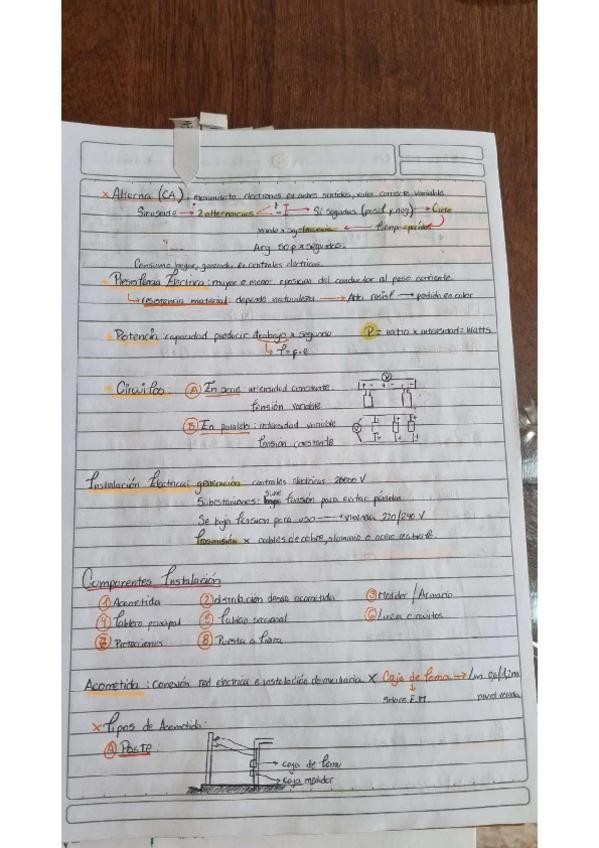 x Alterna (CA): movimiento electrones en ambos sentidos, valor corriente variable
Sinusoide → 2 alternancias + - → Si seguidas (posit y neg) → Ciclo
Arg 50 p x segundos.
Consumo hogar, generada en centrales electricas.
Resistencia Electrica: mayor o menor oposicion del conductor al paso corriente
resistencia material: depende naturaleza → Alta resist → perdida en calor
Potencia: capacidad producir trabajo x segundo P = x intensidad = Watts
T = F . e
Circuitos: A En serie: intensidad constante
tensión variable
B En paralelo: intensidad variable
tensión constante
V
Instalación Electrica: generación: centrales electricas 20000 V
Subestaciones: sube tensión para evitar pérdidas
Se baja tension para uso → vivienda 220/240 V
x cables de cobre, aluminio o acero
Componentes Instalación
1 Acometida 2 distribución desde acometida 3 Medidor / Armario
4 Tablero principal 5 Tablero seccional 6 Linea circuitos
7 Protecciones 8 Puesta a tierra
Acometida: conexión red electrica e instalación domiciliaria x Caja de toma →
sobre E.M. nivel vereda
x Tipos de Acometida:
A Poste:
caja de toma
caja medidor